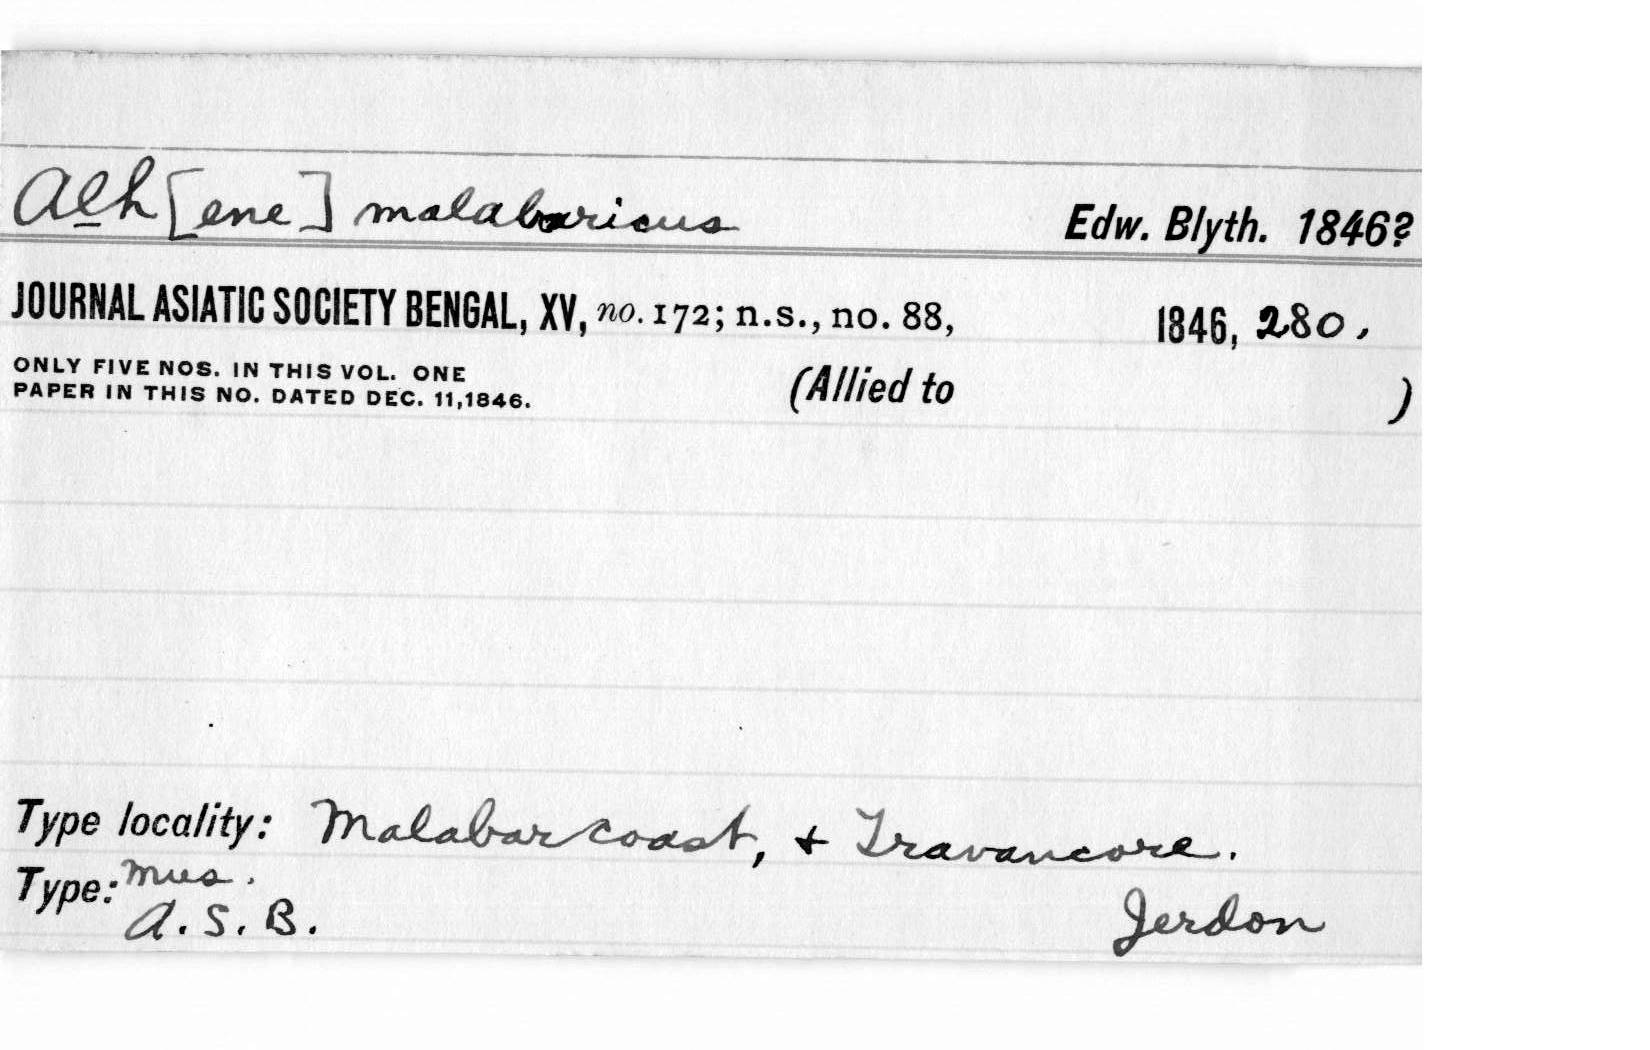 Aeh [ene] malabaricus Edw. Blyth. 1846?
JOURNAL ASIATIC SOCIETY BENGAL, XV, no. 172; n.s., no. 88, 1846, 280,
ONLY FIVE NOS. IN THIS VOL. ONE
PAPER IN THIS NO. DATED DEC. 11,1846.
(Allied to )
Type locality: Malabar coast, + Travancore.
Type: Mus.
A.S.B. Jerdon